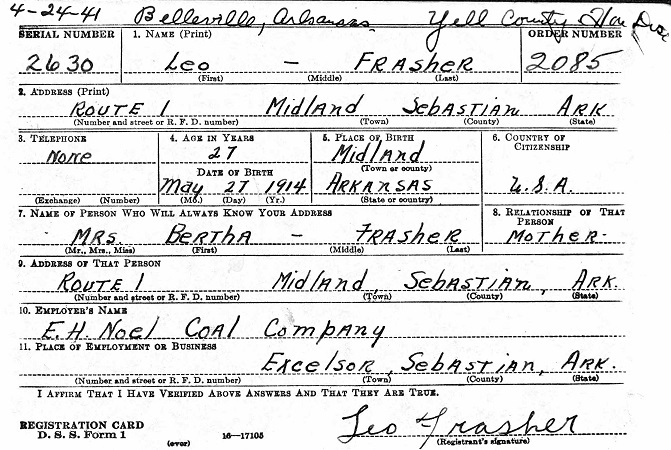 4-24-41 Belleville, Arkansas. Yell County
SERIAL NUMBER 1. NAME (Print) ORDER NUMBER
2630 Leo — FRASHER 2085
(First) (Middle) (Last)
2. ADDRESS (Print)
ROUTE 1 Midland Sebastian ARK
(Number and street or R. F. D. number) (Town) (County) (State)
3. TELEPHONE 4. AGE IN YEARS 5. PLACE OF BIRTH 6. COUNTRY OF CITIZENSHIP
None 27 Midland
DATE OF BIRTH (Town or county)
May 27 1914 ARKANSAS U.S.A.
(Exchange) (Number) (Mo.) (Day) (Yr.) (State or country)
7. NAME OF PERSON WHO WILL ALWAYS KNOW YOUR ADDRESS 8. RELATIONSHIP OF THAT PERSON
MRS. BERTHA — FRASHER MOTHER
(Mr., Mrs., Miss) (First) (Middle) (Last)
9. ADDRESS OF THAT PERSON
ROUTE 1 Midland, Sebastian, ARK.
(Number and street or R. F. D. number) (Town) (County) (State)
10. EMPLOYER'S NAME
E.H. Noel Coal Company
11. PLACE OF EMPLOYMENT OR BUSINESS
Excelsor, Sebastian, ARK.
(Number and street or R. F. D. number) (Town) (County) (State)
I AFFIRM THAT I HAVE VERIFIED ABOVE ANSWERS AND THAT THEY ARE TRUE.
REGISTRATION CARD
D. S. S. Form 1 (over) 16—17105 Leo Frasher
(Registrant's signature)